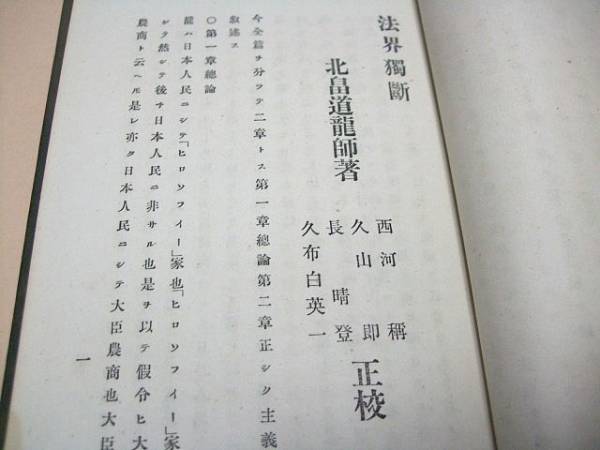 法界獨斷
北畠道龍師著
西河稱
久山即
長晴登
久布白英一
正校
今全篇ヲ分ツテ二章トス第一章總論第二章正シク主義
敍述ス
〇第一章總論
龍ハ日本人民ニシテ「ヒロソフイー」家也「ヒロソフイー」家
シク然シテ後チ日本人民ニ非サル也是ヲ以テ假令ヒ大
農商ト云ヘル是レ亦タ日本人民ニシテ大臣農商也大臣
一